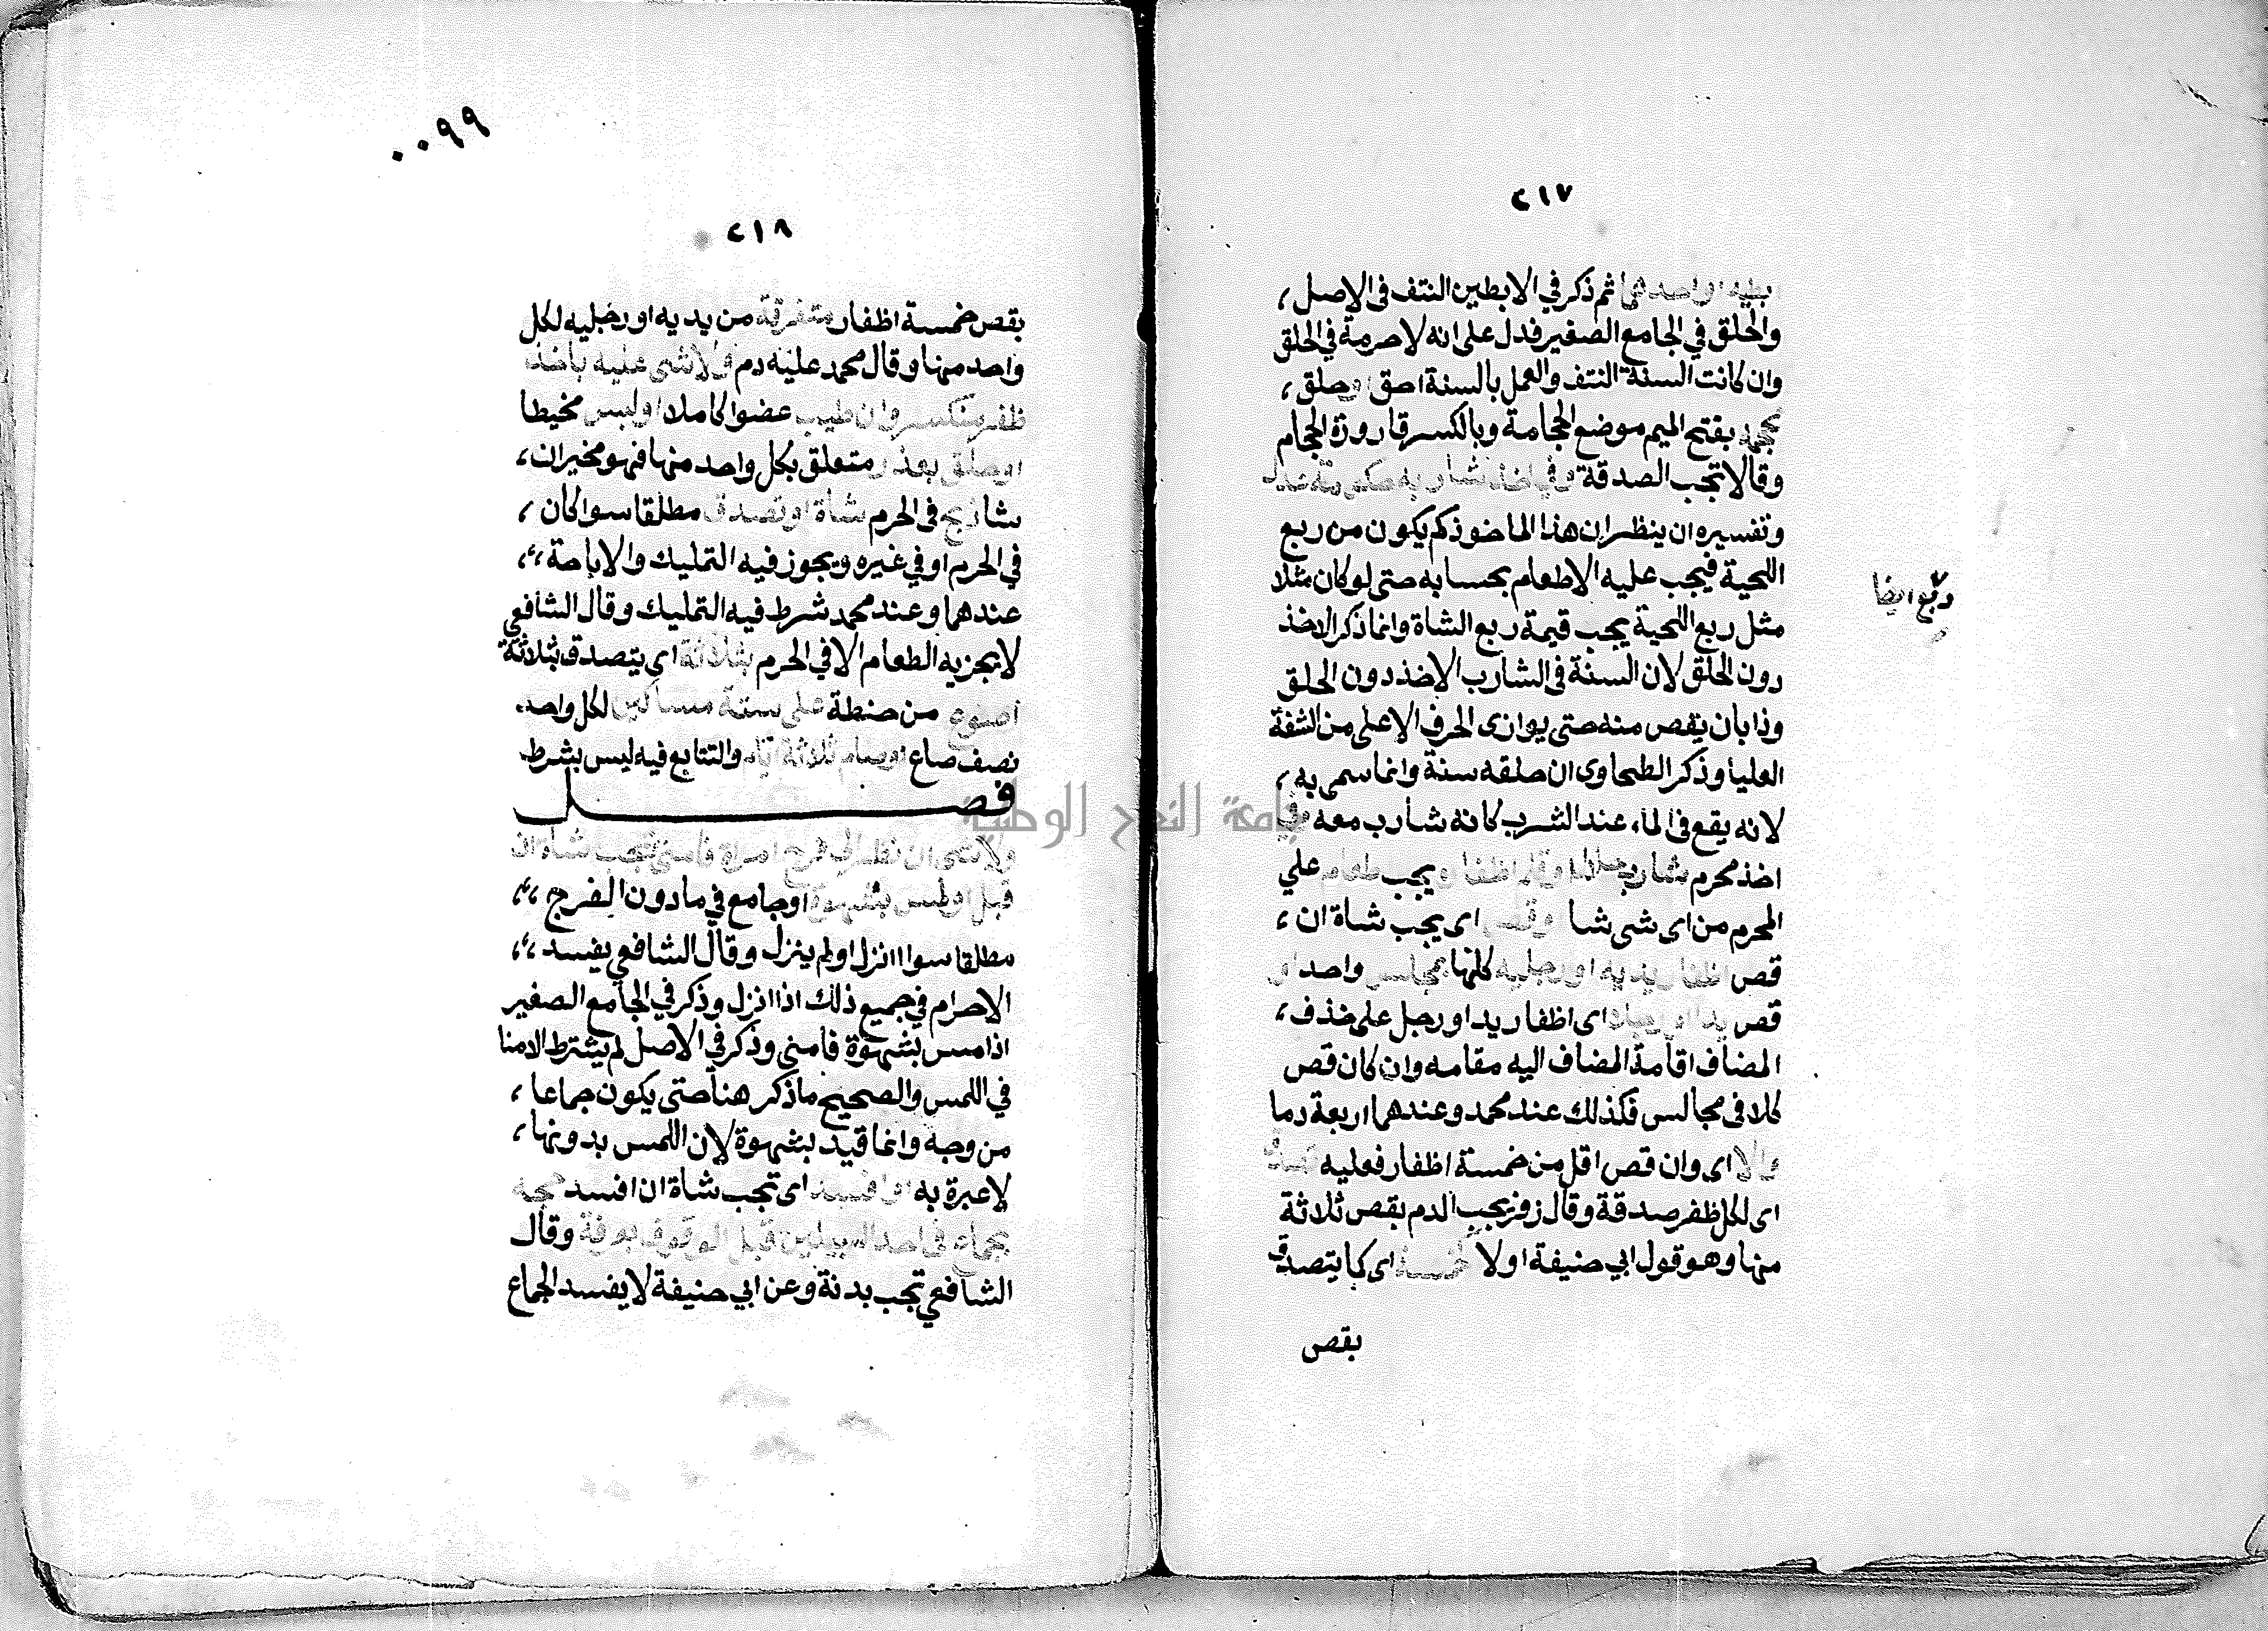 ٢١٧
ابطيه او احدهما ثم ذكر في الابطين النتف فى الاصل ،
والحلق في الجامع الصغير فدل على انه لا حرمة في الحلق
وان كانت السنة النتف والعمل بالسنة احق او حلق ،
محجمه بفتح الميم موضع الحجامة وبالكسر قارورة الحجام
وقالا تجب الصدقة وفي اخذ شاربه حكومة عدل
وتفسيره ان ينظر ان هذا الماخوذ كم يكون من ربع
اللحية فيجب عليه الاطعام بحسابه حتى لو كان مثلا
مثل ربع اللحية يجب قيمة ربع الشاة وانما ذكر الاخذ
دون الحلق لان السنة فى الشارب الاخذ دون الحلق
وذا بان يقص منه حتى يوازى الحرف الاعلى من الشفة
العليا وذكر الطحاوى ان حلقه سنة وانما سمى به ،
لانه يقع فى الماء عند الشرب كانه شارب معه وفي
اخذ محرم شارب حلال او قلم اظفاره يجب طعام علي
المحرم من اى شى شا او قص اى يجب شاة ان ،
قص اظفار يديه او رجليه كلها بمجلس واحد او
قص يدا او رجلا اى اظفار يد او رجل على حذف ،
المضاف اقامة المضاف اليه مقامه وان كان قص
كلا فى مجالس فكذلك عند محمد وعندهما اربعة دما
والا اى وان قص اقل من خمسة اظفار فعليه
اى لكل ظفر صدقة وقال زفر يجب الدم بقص ثلاثة
منها وهو قول ابي حنيفة اولا كخمسة اى كما يتصدق
بقص
ربع ايضا
٠٠٩٩
٢١٨
بقص خمسة اظفار متفرقة من يديه او رجليه لكل
واحد منها وقال محمد عليه دم ولا شى عليه باخذ
ظفر منكسر وان طيب عضوا كاملا او لبس مخيطا
او حلق بعذر متعلق بكل واحد منها فهو مخير ان ،
شا ذبح فى الحرم شاة او تصدق مطلقا سوا كان ،
في الحرم او في غيره ويجوز فيه التمليك والاباحة ،،
عندهما وعند محمد شرط فيه التمليك وقال الشافعي
لا يجزيه الطعام الا في الحرم بثلاثة اى يتصدق بثلاثة
اصوع من حنطة على ستة مساكين لكل واحد
نصف صاع او صام ثلاثة ايام والتتابع فيه ليس بشرط
فصل
ولا شى ان نظر الى فرج امراة فامنى وتجب شاة ان
قبل او لمس بشهوة او جامع في ما دون الفرج ،،
مطلقا سوا انزل او لم ينزل وقال الشافعي يفسد ،،
الاحرام في جميع ذلك اذا انزل وذكر في الجامع الصغير
اذا مس بشهوة فامنى وذكر في الاصل لم يشترط الامنا
في اللمس والصحيح ما ذكر هنا حتى يكون جماعا ،
من وجه وانما قيد بشهوة لان اللمس بدونها ،
لا عبرة به او افسد اى تجب شاة ان افسد حجه
بجماع فى احد السبيلين قبل الوقوف بعرفة وقال
الشافعي تجب بدنة وعن ابي حنيفة لا يفسد الجماع
جامعة النجاح الوطنية